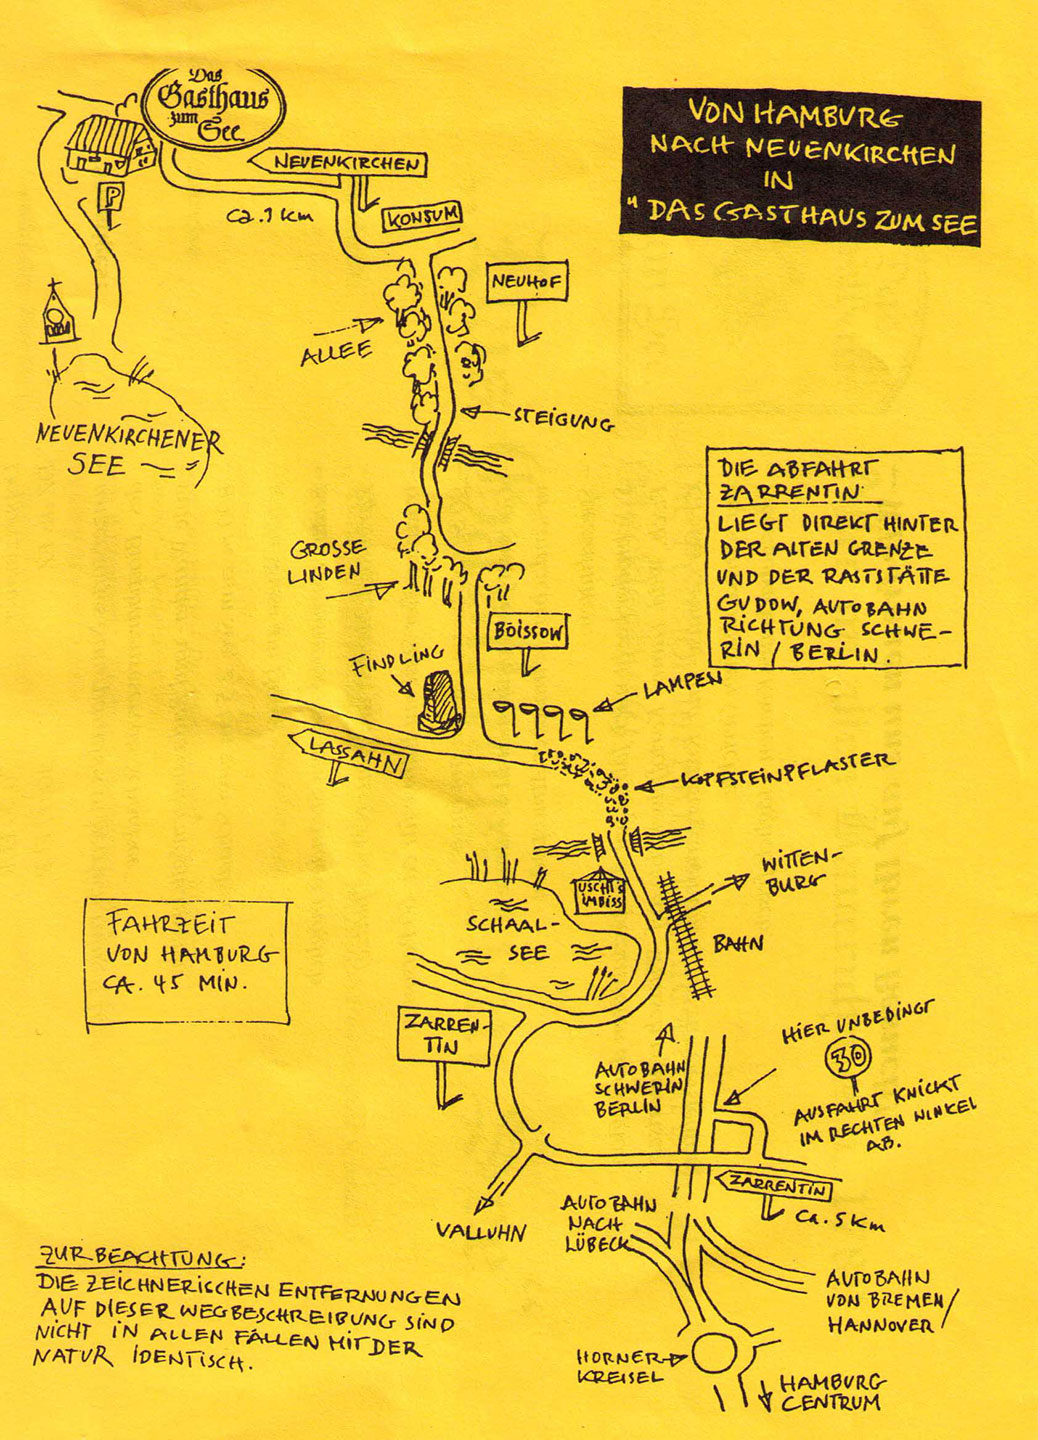 Das
Gasthaus
zum
See
VON HAMBURG
NACH NEUENKIRCHEN
IN
"DAS GASTHAUS ZUM SEE
NEUENKIRCHEN
P
ca. 1 km
KONSUM
NEUHOF
ALLEE
STEIGUNG
NEUENKIRCHENER
SEE
DIE ABFAHRT
ZARRENTIN
LIEGT DIREKT HINTER
DER ALTEN GRENZE
UND DER RASTSTÄTTE
GUDOW, AUTOBAHN
RICHTUNG SCHWE-
RIN / BERLIN.
GROSSE
LINDEN
BOISSOW
FINDLING
LAMPEN
LASSAHN
KOPFSTEINPFLASTER
WITTEN-
BURG
USCHI'S
IMBISS
SCHAAL-
SEE
BAHN
FAHRZEIT
VON HAMBURG
CA. 45 MIN.
ZARREN-
TIN
HIER UNBEDINGT
30
AUSFAHRT KNICKT
IM RECHTEN WINKEL
AB.
AUTOBAHN
SCHWERIN
BERLIN
ZARRENTIN
ca. 5 Km
VALLUHN
AUTOBAHN
NACH
LÜBECK
ZUR BEACHTUNG:
DIE ZEICHNERISCHEN ENTFERNUNGEN
AUF DIESER WEGBESCHREIBUNG SIND
NICHT IN ALLEN FÄLLEN MIT DER
NATUR IDENTISCH.
AUTOBAHN
VON BREMEN/
HANNOVER/
HORNER
KREISEL
HAMBURG
CENTRUM